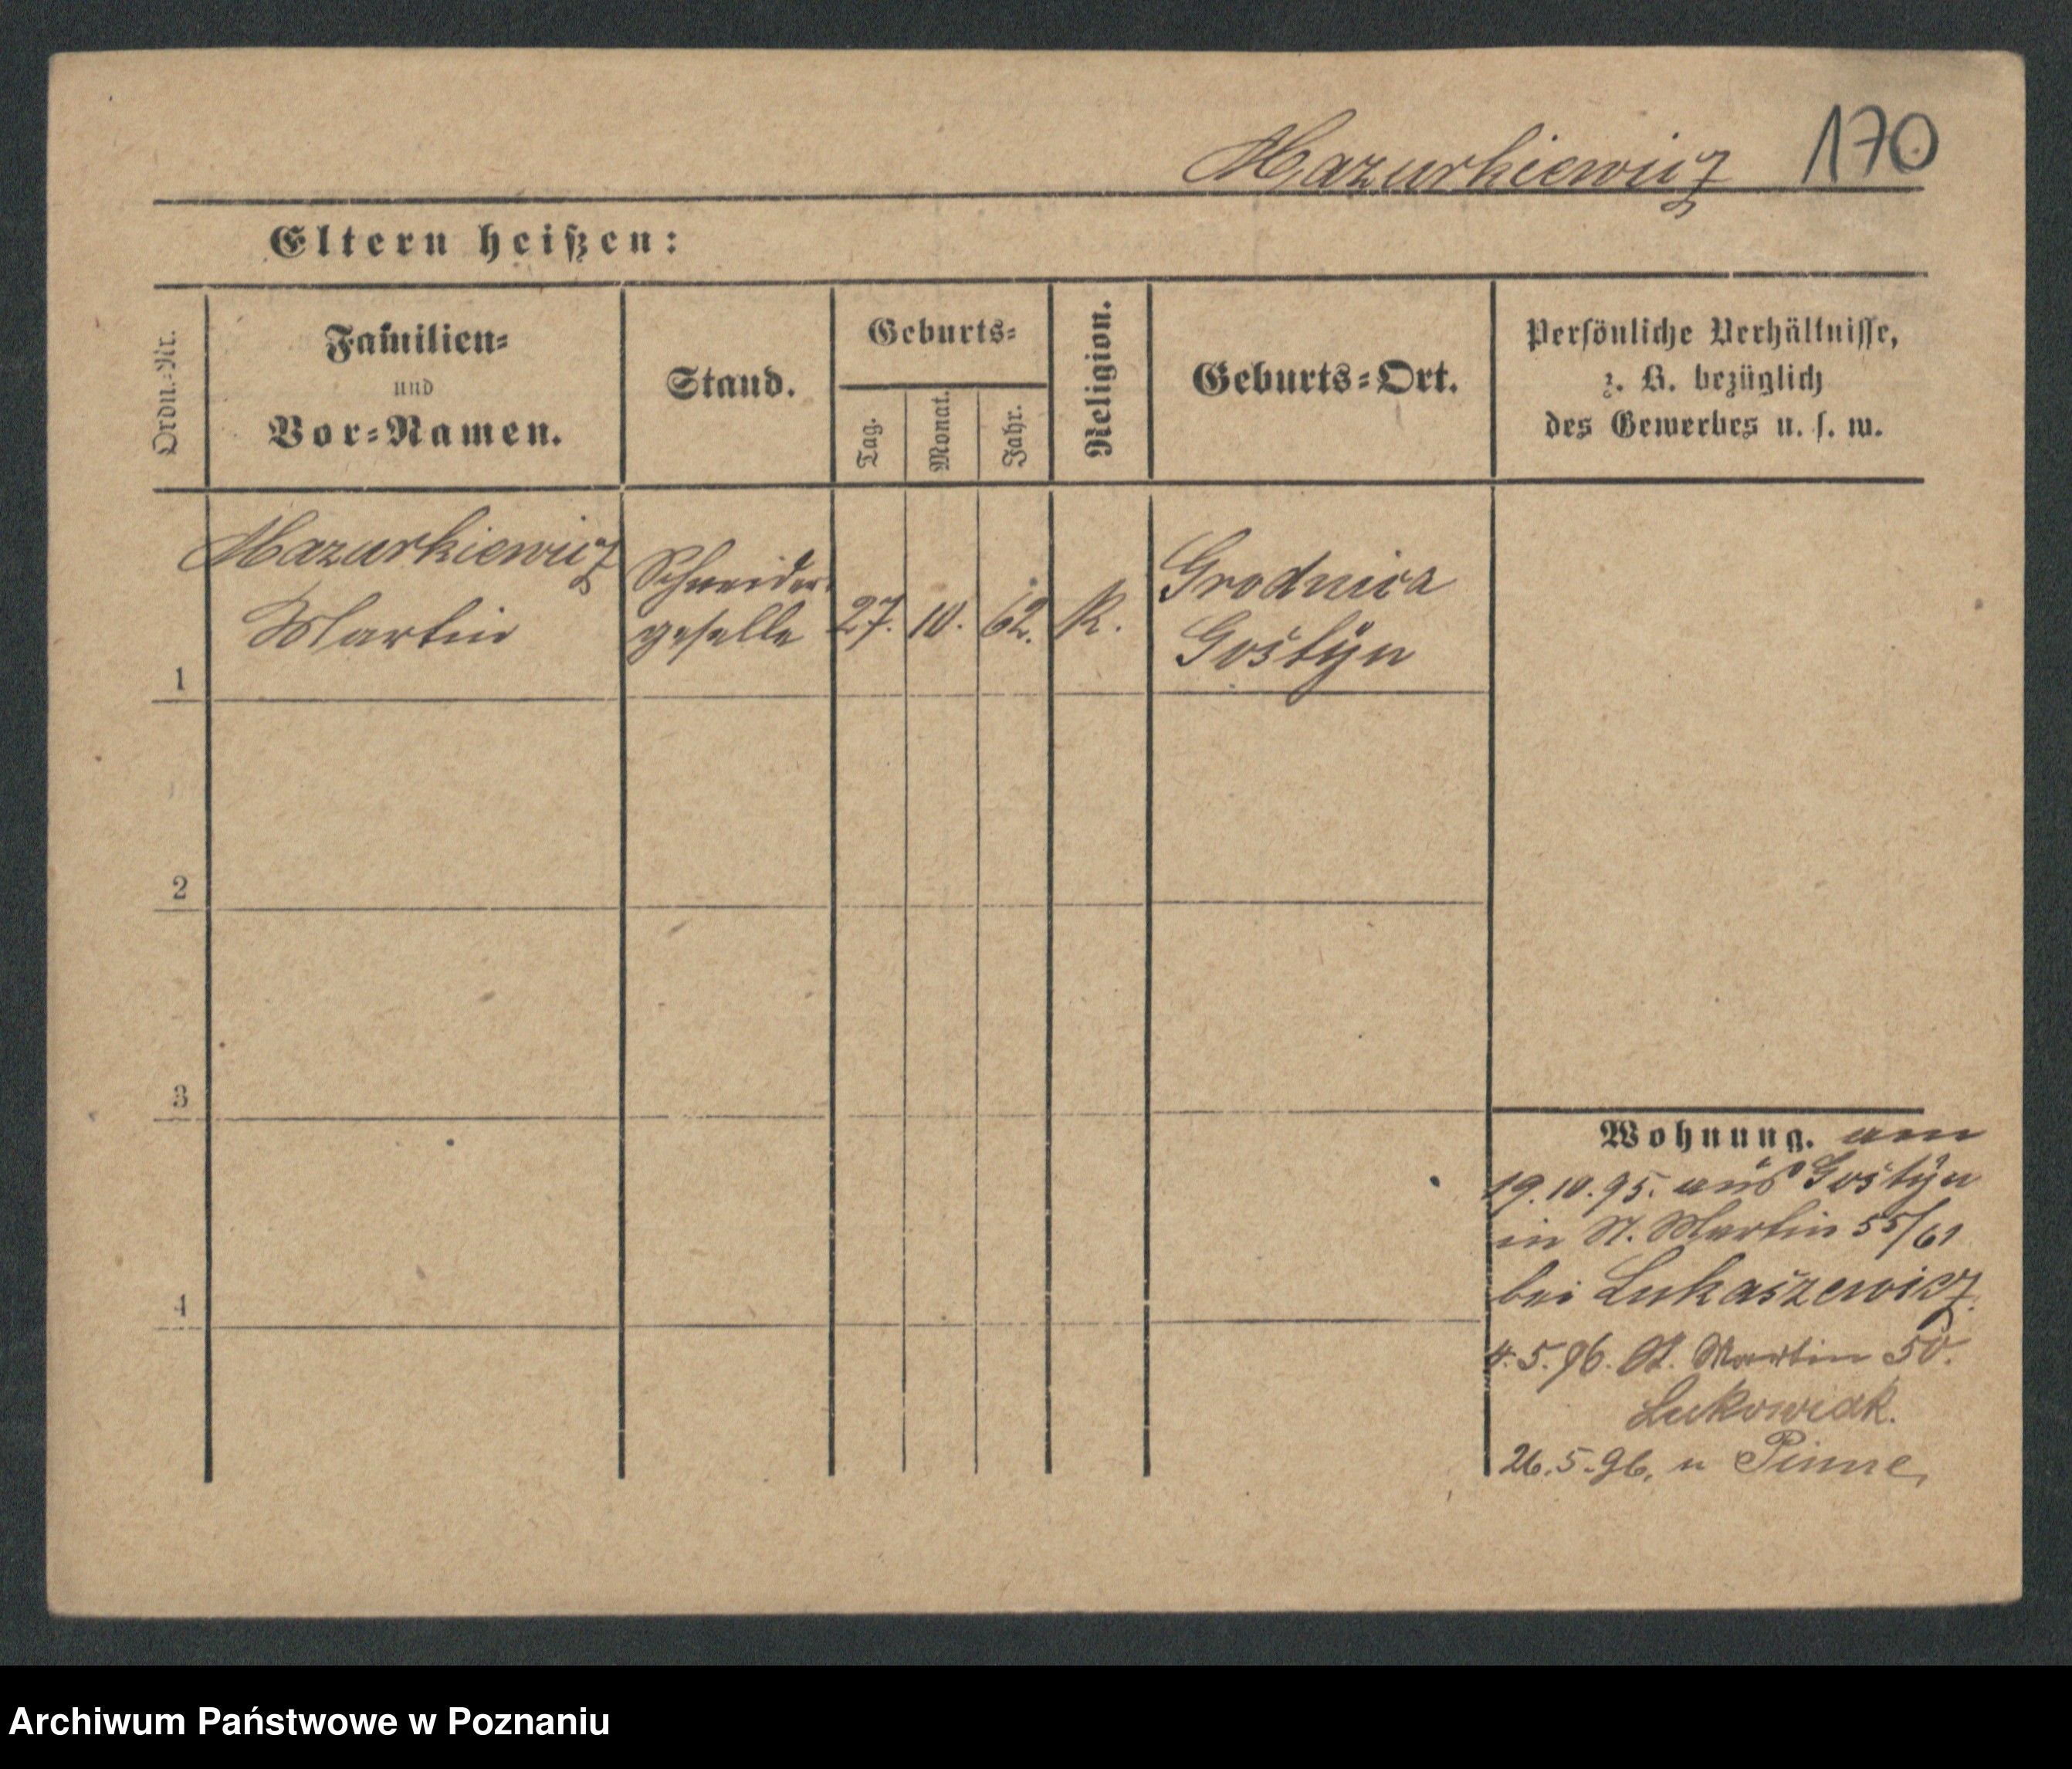 Mazurkiewicz 170
Eltern heißen:
Ordn.-Nr.
Familien-
und
Vor-Namen.
Stand.
Geburts-
Tag.
Monat.
Jahr.
Religion.
Geburts-Ort.
Persönliche Verhältnisse,
z. B. bezüglich
des Gewerbes u. s. w.
1
Mazurkiewicz
Martin
Schneider-
geselle
27. 10. 62. K.
Grodnica
Gostyn
2
3
4
Wohnung. am
19.10.95. aus Gostyn
in St. Martin 55/61
bei Lukaszewicz.
4.5.96. St. Martin 50.
Lukowiak.
26.5.96. n Pinne
Archiwum Państwowe w Poznaniu